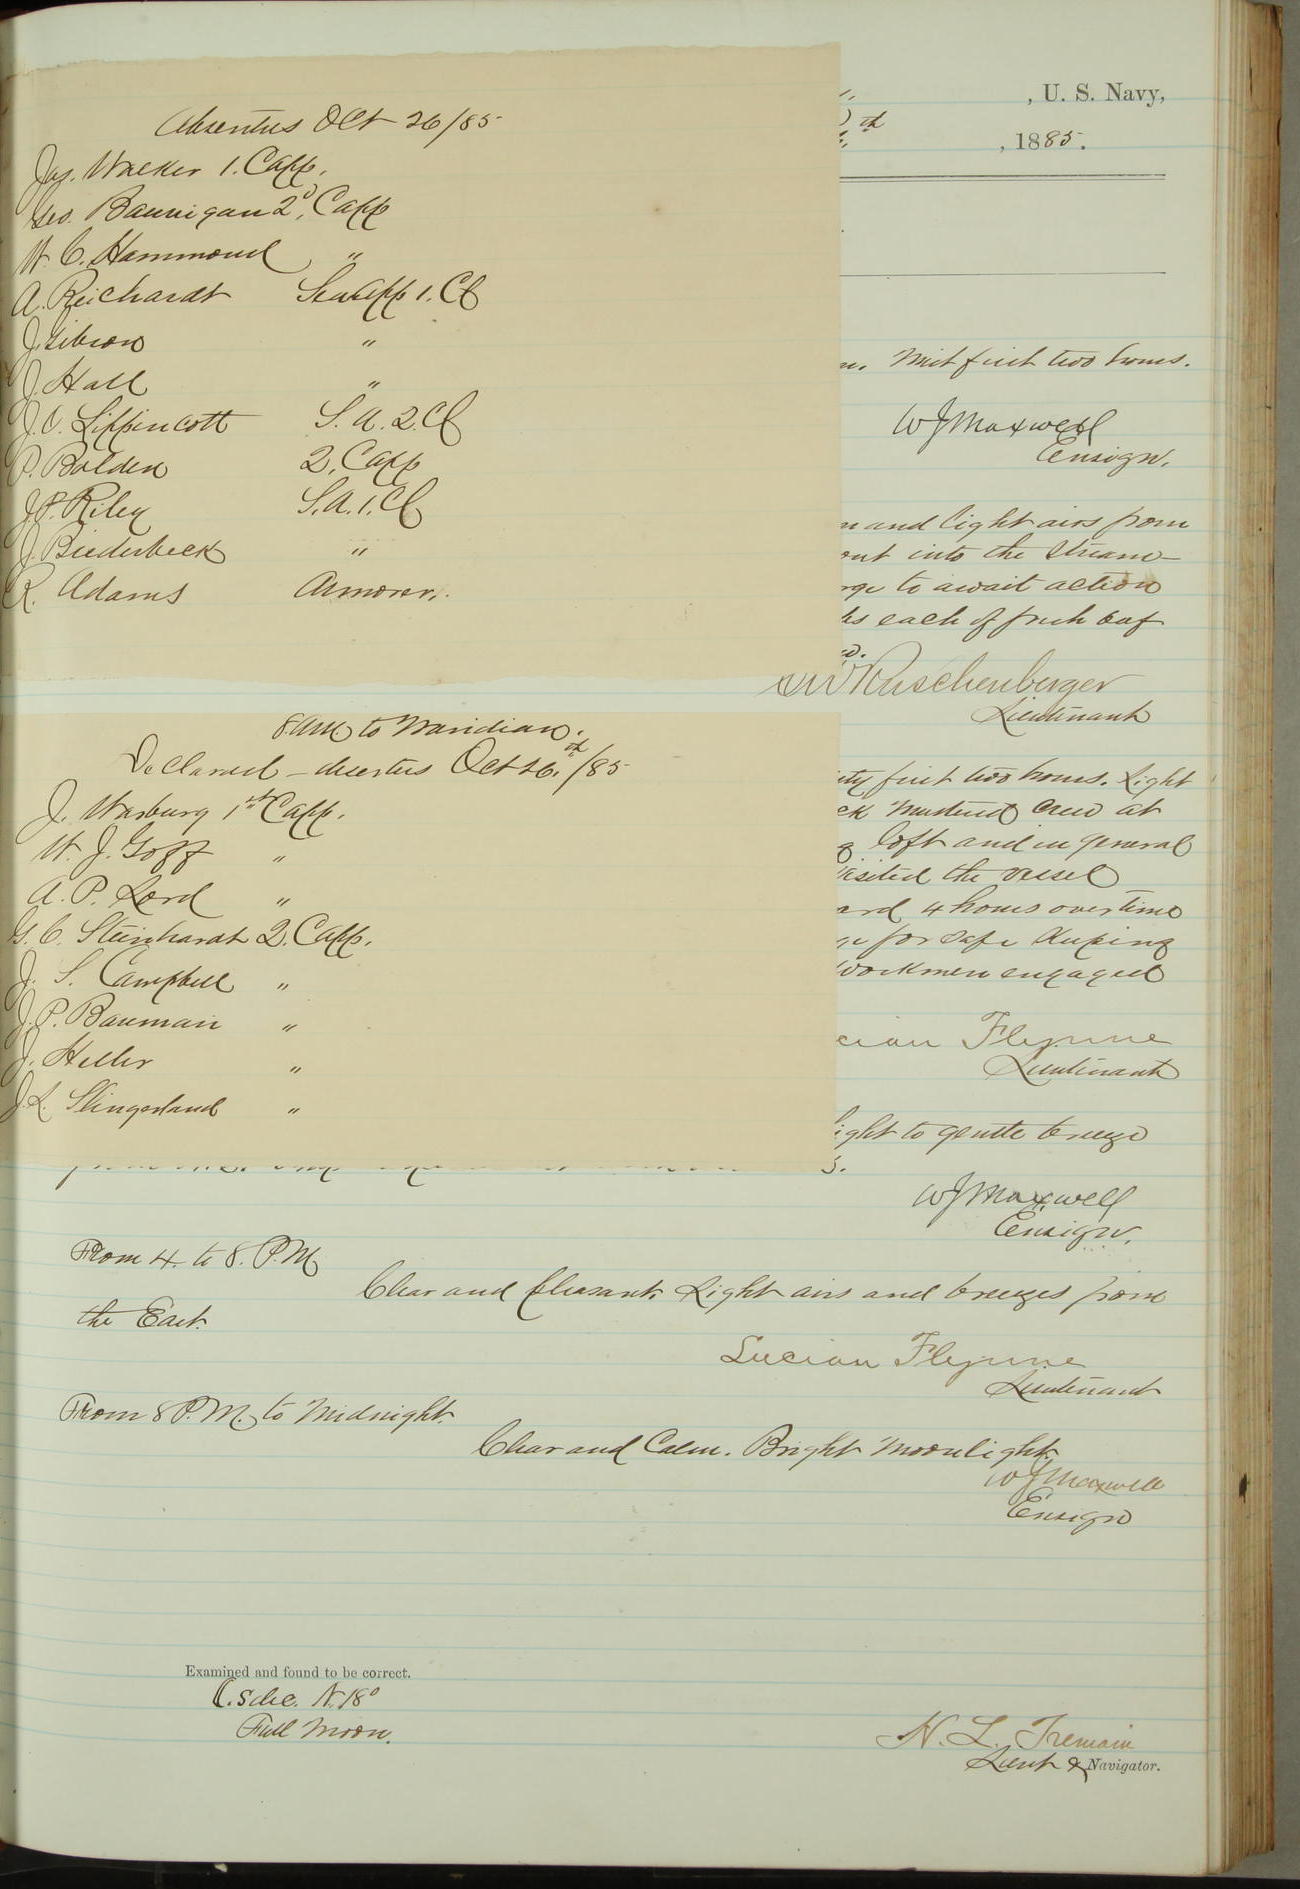 , U. S. Navy,
th
, 1885.
Absentees Oct 26/85
Jas. Walker 1. Capp.
Geo. Bannigan 2d, Capp
W. C. Hammond "
A. Reichardt Sea App 1. Cl
J. Gibson "
J. Hall "
J. O. Lippincott S. A. 2. Cl
P. Bolden 2. Capp
J. P. Riley S. A. 1. Cl
J. Biederbeck "
R. Adams Armorer.
first two hours.
W J Maxwell
Ensign.
and light airs from
out into the stream
to await action
each of fresh beef
Ruschenberger
Lieutenant
8 AM to Meridian.
Declared - deserters Oct 26th/85
J. Warburg 1st Capp.
W. J. Goff "
A. P. Lord "
G. C. Steinhardt 2. Capp.
J. S. Campbell "
J. P. Bauman "
J. Heller "
J. L. Slingerland "
first two hours. Light
mustered crew at
loft and in general
visited the vessel
4 hours overtime
for safe keeping
workmen engaged
Flynne
Lieutenant
light to gentle breeze
W J Maxwell
Ensign.
From 4. to 8. P.M.
Clear and pleasant. Light airs and breezes from
the East.
Lucian Flynne
Lieutenant
From 8 P.M. to Midnight.
Clear and Calm. Bright Moonlight.
W J Maxwell
Ensign
Examined and found to be correct.
N. 18°
Full Moon.
N. L. Tremain
Lieut & Navigator.